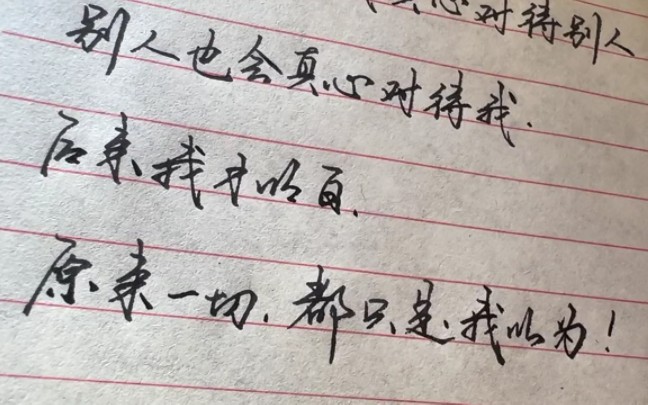 真心对待别人
别人也会真心对待我.
后来我才明白.
原来一切.都只是我以为!